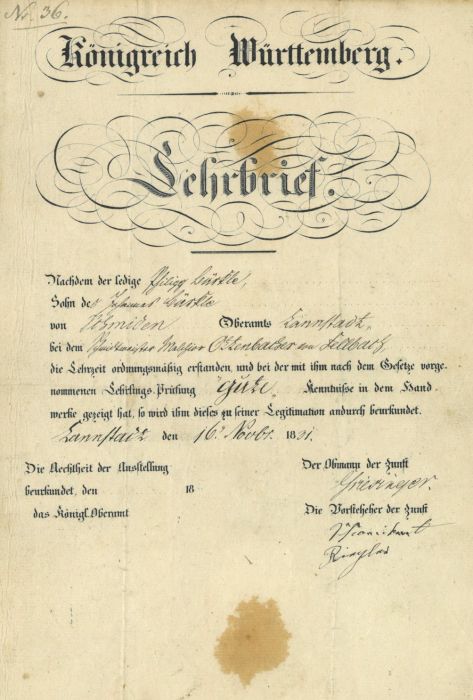 No. 36.
Königreich Württemberg.
Lehrbrief.
Nachdem der ledige Philipp Bürkle,
Sohn des Johannes Bürkle
von Schmiden Oberamts Cannstadt,
bei dem Melchior von Fellbach
die Lehrzeit ordnungsmäßig erstanden, und bei der mit ihm nach dem Gesetze vorge-
nommenen Lehrlings-Prüfung Gute Kenntnisse in dem Hand-
werke gezeigt hat, so wird ihm dieses zu seiner Legitimation andurch beurkundet.
Cannstadt den 16. Novbr. 18
Die Aechtheit der Ausstellung
beurkundet, den 18
das Königl. Oberamt
Der Obmann der Zunft
Griesinger.
Die Vorsteher der Zunft